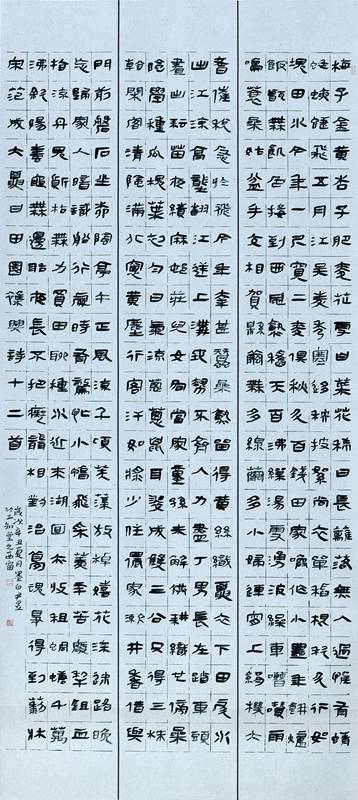 梅子金黃杏子肥麥花雪白菜花稀日長籬落無人過惟有蜻
蜓蛺蝶飛五月江吳麥秀寒移秧披絮尚衣單稻根科斗行如
塊田水今年一尺寬二麥俱秋斗百錢田家喚作小豐年餅爐
飯甑無飢色接到西風熟稻天百沸繅湯雪湧波繅車嘈囋雨
鳴蓑桑姑盆手交相賀綿繭無多絲繭多小婦連宵上絹機大
耆催稅急於飛今年幸甚蠶桑熟留得黃絲織夏衣下田戽水
出江流高壟翻江逆上溝地勢不齊人力盡丁男長在踏車頭
晝出耘田夜績麻村莊兒女各當家童孫未解供耕織也傍桑
陰學種瓜槐葉初勻日氣涼蔥蔥鼠耳翠成雙三公只得三株
看閑客清陰滿北窗黃塵行客汗如漿少住儂家漱井香借與
門前磐石坐柳陰亭午正風涼千頃芙蕖放棹嬉花深迷路晚
忘歸家人暗識船行處時有驚忙小鴨飛采菱辛苦廢犁鋤血
指流丹鬼質枯無力買田聊種水近來湖面亦收租蜩螗千萬
沸斜陽蛙黽無邊聒夜長不把癡聾相對治夢魂爭得到藜牀
宋范成大夏日田園雜興詩十二首
歲次辛丑夏月墨白